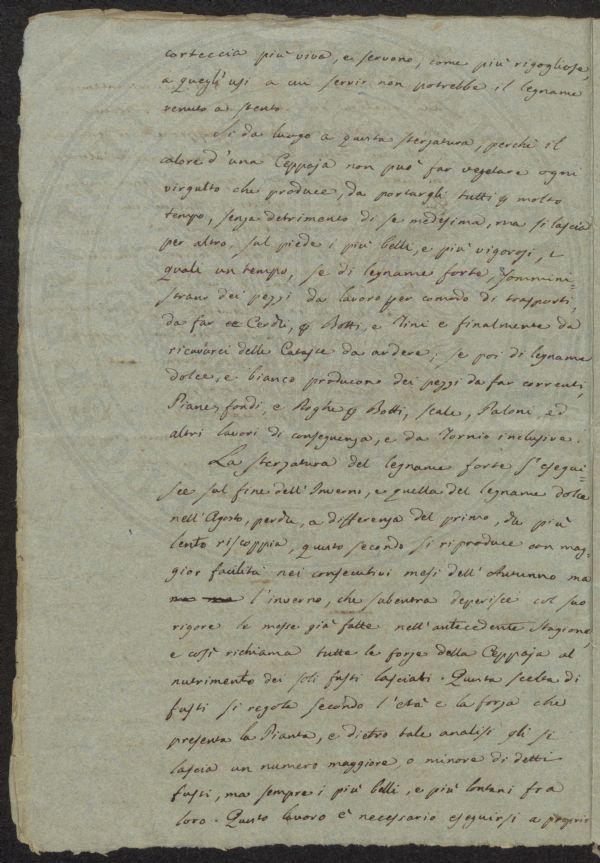 corteccia più viva, e servono, come più rigogliose,
a quegl'usi a cui servir non potrebbe il legname
venuto a stento.
Si dà luogo a questa sterzatura, perchè il
calore d'una Ceppaja non può far vegetare ogni
virgulto che produce, da portargli tutti p molto
tempo, senza detrimento di se medesima, ma si lascia
per altro, sul piede i più belli, e più vigorosi, i
quali un tempo, se di legname forte, sommini=
strano dei pezzi da lavoro per comodo di trasporti,
da far Cerchi, p Botti, e Tini e finalmente da
ricavarci delle Cataste da ardere; se poi di legname
dolce, e bianco producono dei pezzi da far correnti,
Piane, fondi, e Doghe p Botti, scale, Paloni, ed
altri lavori di conseguenza, e da Tornio inclusive.
La sterzatura del legname forte s'esegui=
sce sul fine dell'Inverno, e quella del legname dolce
nell'Agosto, perchè, a differenza del primo, che più
lento riscoppia, questo secondo si riproduce con mag=
gior facilità nei consecutivi mesi dell'Autunno ma
l'inverno, che subentra deperisce col suo
rigore le messe già fatte nell'antecedente Stagione,
e così richiama tutte le forze della Ceppaja al
nutrimento dei soli fusti lasciati. Questa scelta di
fusti si regola secondo l'età e la forza che
presenta la Pianta, e dietro tale analisi gli si
lascia un numero maggiore, o minore di detti
fusti, ma sempre i più belli, e più lontani fra
loro. Questo lavoro è necessario eseguirsi a proprie